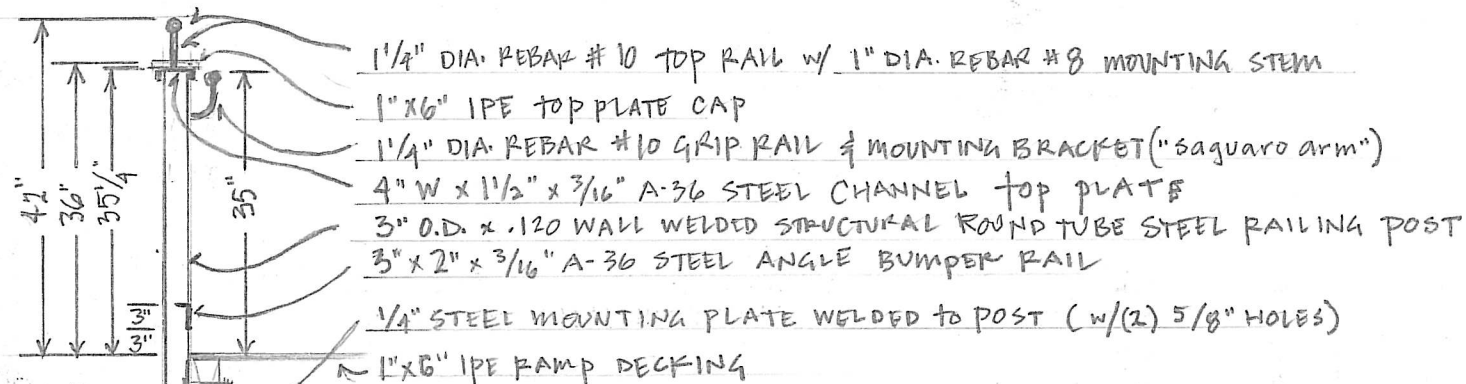 1 1/4" DIA. REBAR #10 TOP RAIL W/ 1" DIA. REBAR #8 MOUNTING STEM
1"X6" IPE TOP PLATE CAP
1 1/4" DIA. REBAR #10 GRIP RAIL & MOUNTING BRACKET ("saguaro arm")
4" W X 1 1/2" X 3/16" A-36 STEEL CHANNEL TOP PLATE
3" O.D. X .120 WALL WELDED STRUCTURAL ROUND TUBE STEEL RAILING POST
3" X 2" X 3/16" A-36 STEEL ANGLE BUMPER RAIL
1/4" STEEL MOUNTING PLATE WELDED TO POST (W/(2) 5/8" HOLES)
1"X6" IPE RAMP DECKING
42"
36"
35 1/4"
35"
3"
3"